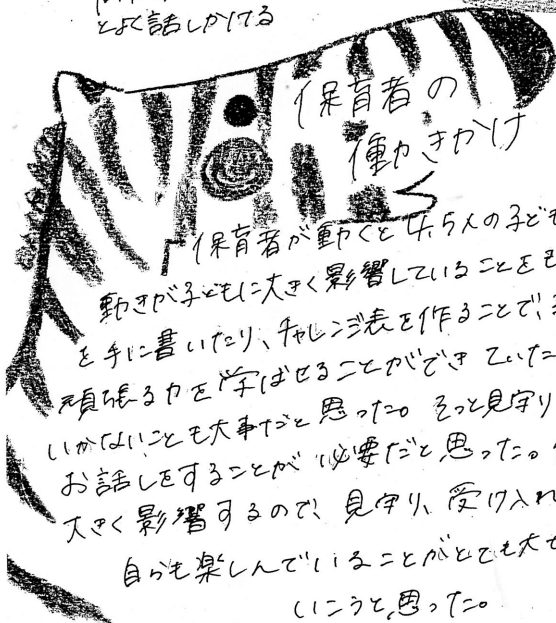 とよく話しかける
保育者の
働きかけ
保育者が動くと4,5人の子ども
動きが子どもに大きく影響していることをも
を手に書いたり、チャレンジ表を作ることで、
頑張る力を学ばせることができていた
いかないことも大事だと思った。そっと見守り
お話しをすることが必要だと思った。
大きく影響するので、見守り、受け入れ
自らも楽しんでいることがとても大
いこうと思った。